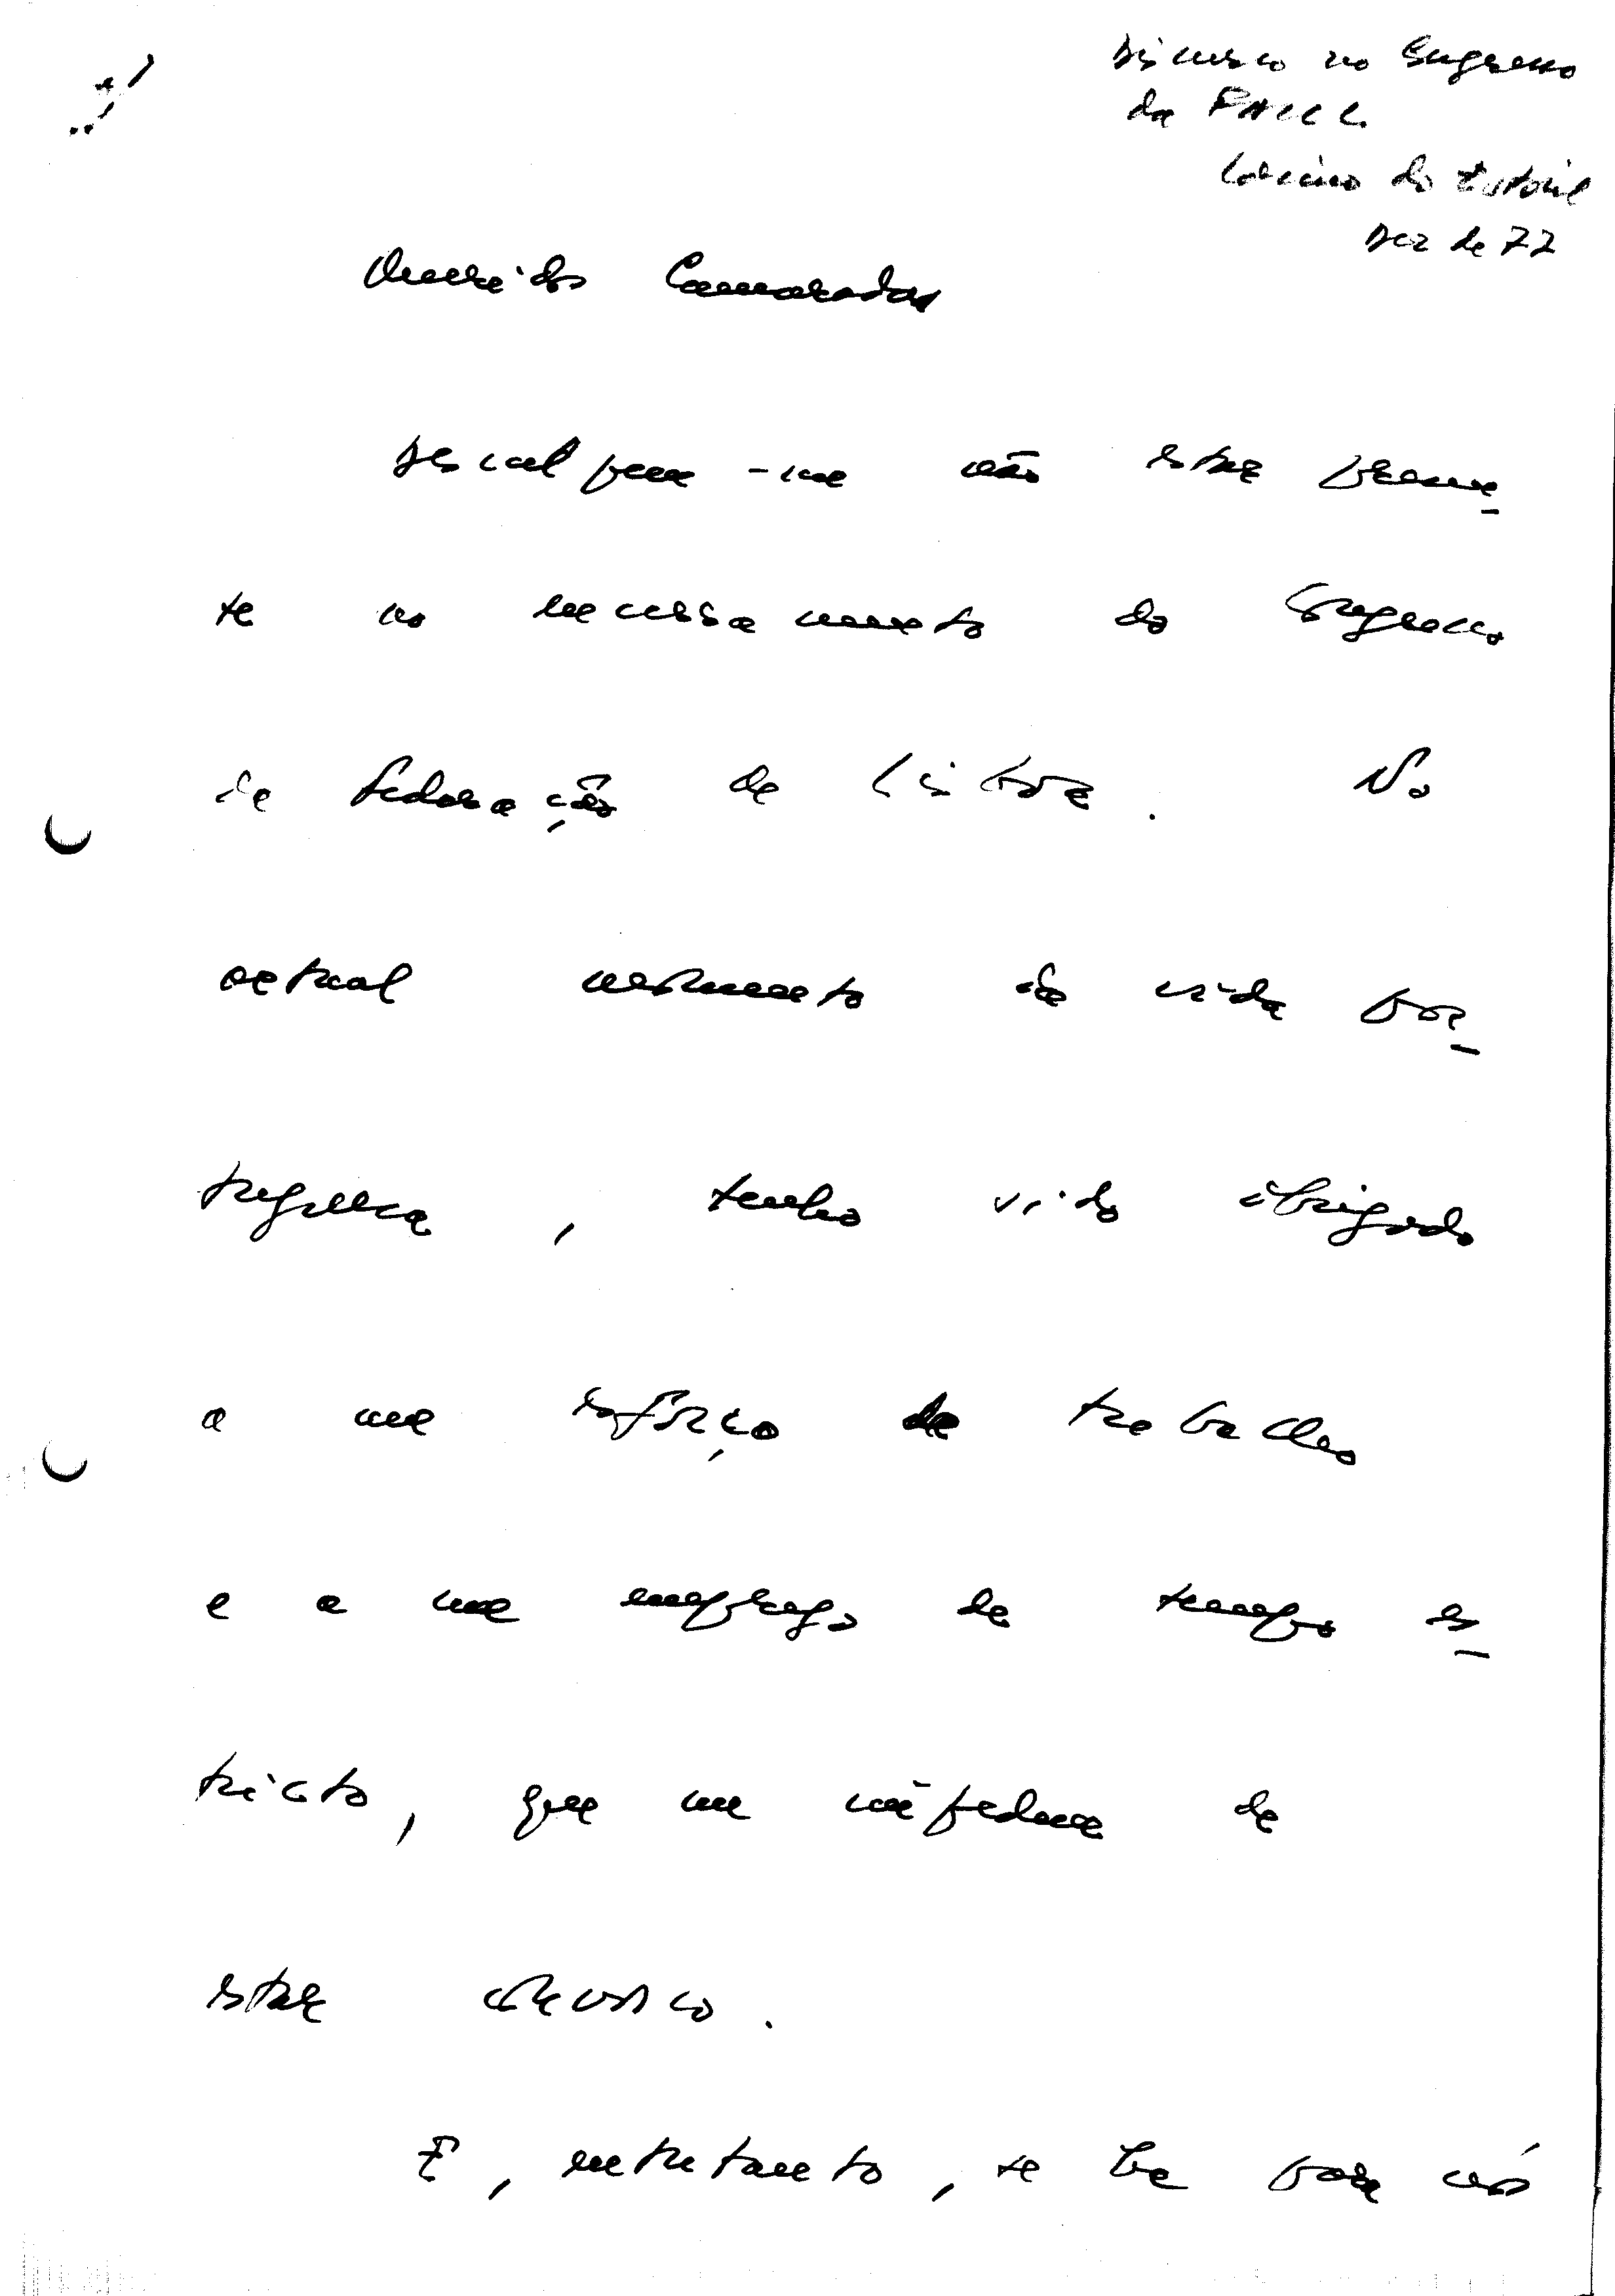 Discurso no Congresso
da FAUL.
Casino do Estoril
Dez de 77
Queridos Camaradas
Desculpem-me não estar presen-
te no encerramento do Congresso
da Federação de Lisboa. No
actual momento da vida por-
tuguesa, tenho sido obrigado
a um esforço de trabalho
e a um emprego de tempo es-
tricto, que me impedem de
estar convosco.
E, entretanto, se há para nós